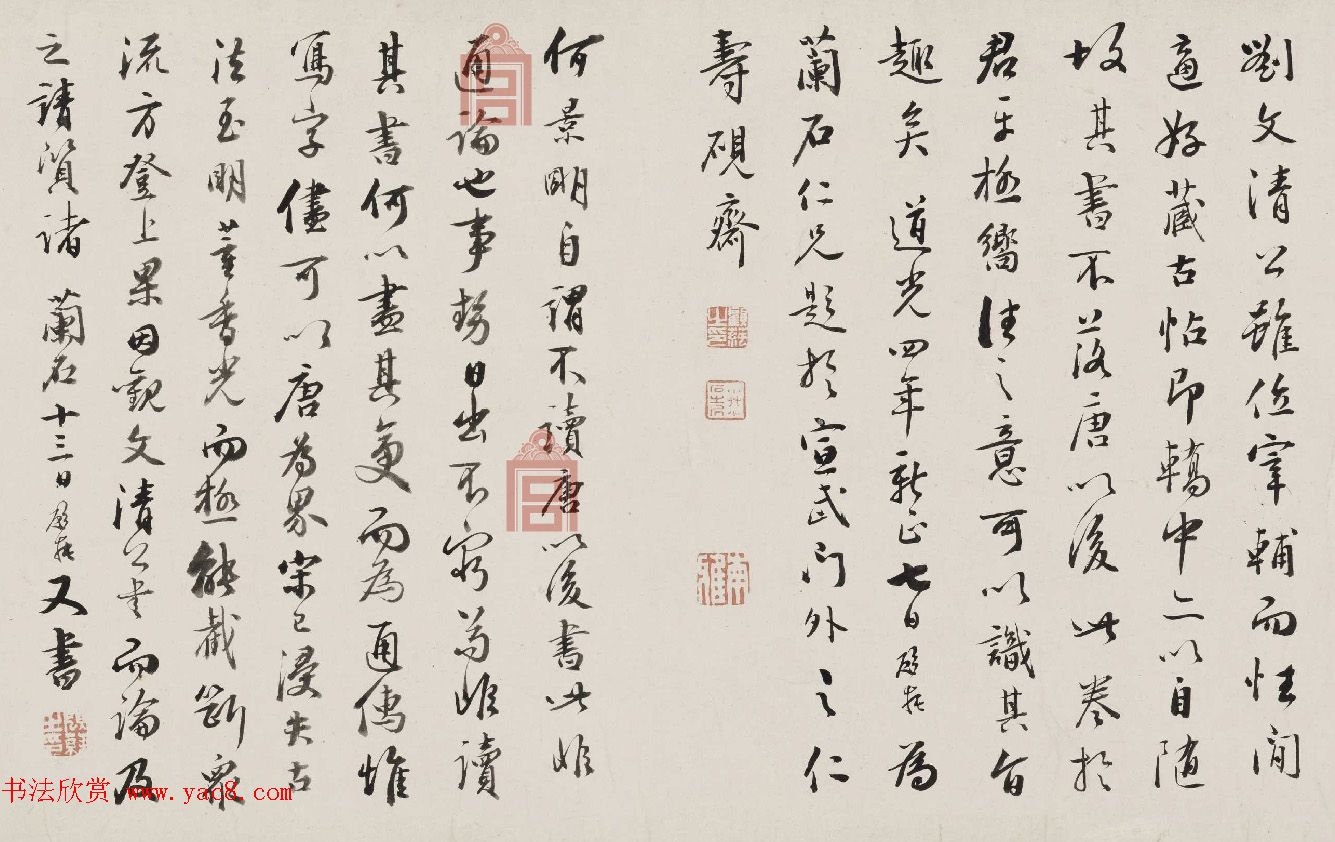 劉文清公雖位宰輔而性閒
適好藏古帖即轎中亦以自隨
故其書不落唐以後此卷於
君平極嚮往之意可以識其旨
趣矣 道光四年新正七日 為
蘭石仁兄題於宣武門外之仁
壽硯齋
何景明自謂不讀唐以後書此非
通論也事勢日出不窮若非讀
其書何以盡其變而為通儒惟
寫字儘可以唐為界宋已浸失古
法至明董香光而極能截斷眾
流方登上果因觀文清公書而論及
之請質諸 蘭石十三日 又書
书法欣赏 www.yac8.com